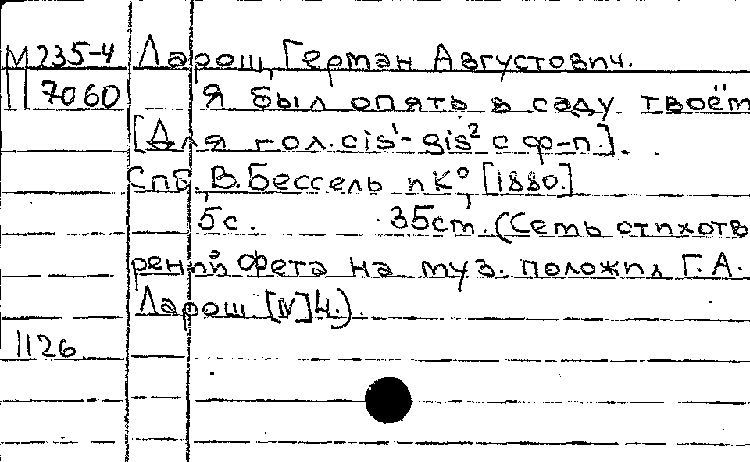 М 235-4 Ларош, Герман Августович.
11 7060 Я был опять в саду твоём
[Для гол. cis¹-gis² с ф-п.].
Спб, В. Бессель и К°, [1880.]
5с. 35ст. (Семь стихотв
рений Фета на муз. положил Г. А.
Ларош [N]4.)
1126